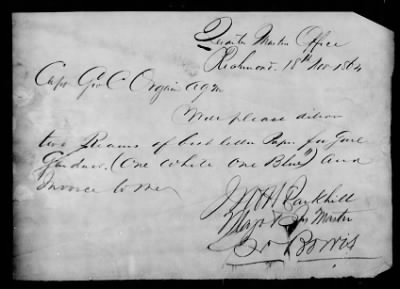 Quarter Master Office
Richmond. 18th Nov 1864
Capt Geo C Orgain aqm
Will please deliver
two Reams of best letter Paper for Genl
Gardner. (One White One Blue) And
Invoice to me
Major & Qr Master